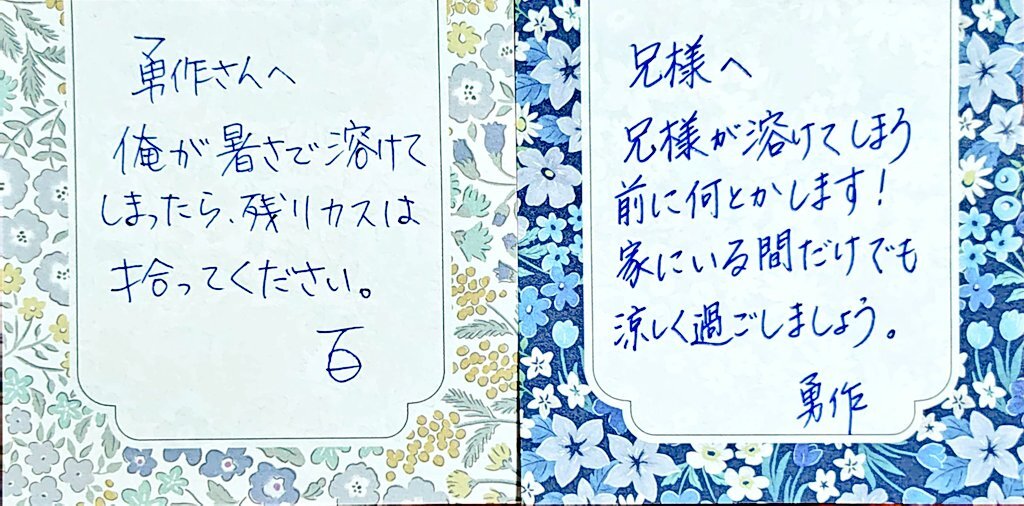 勇作さんへ
俺が暑さで溶けて
しまったら、残りカスは
拾ってください。
百
兄様へ
兄様が溶けてしまう
前に何とかします!
家にいる間だけでも
涼しく過ごしましょう。
勇作